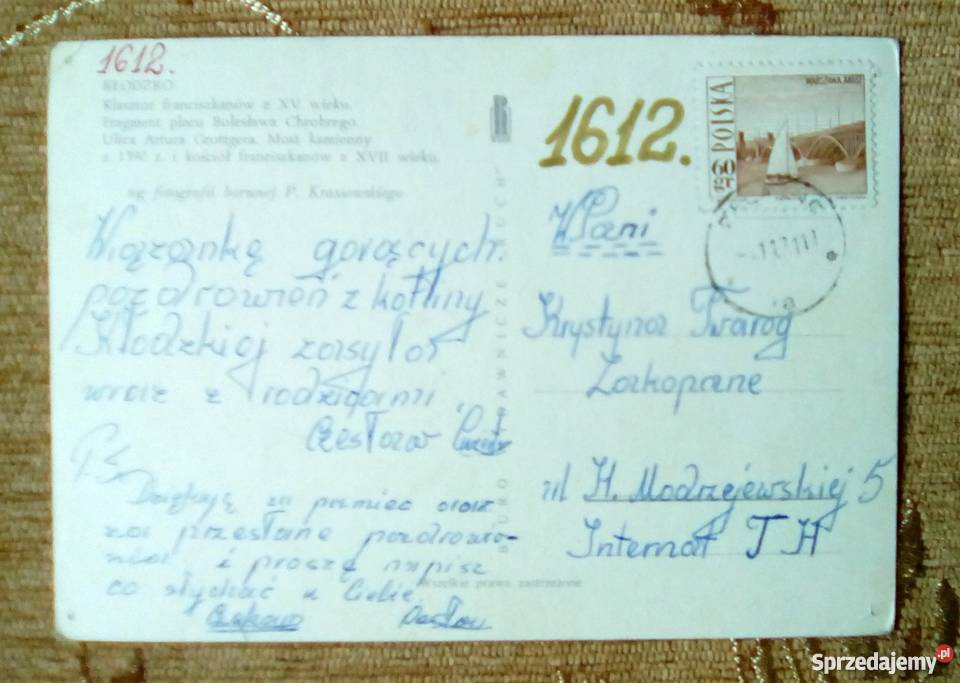 1612.
KŁODZKO
Klasztor franciszkanów z XV wieku.
Fragment placu Bolesława Chrobrego.
Ulica Artura Grottgera. Most kamienny
z 1390 r. i kościół franciszkanów z XVII wieku.
wg fotografii barwnej P. Krassowskiego
Wiązankę gorących
pozdrowień z kotliny
Kłodzkiej zasyła
wraz z rodzicami
Czesław
PS
Dziękuję za pamięć oraz
za przesłane pozdrowie-
nia i proszę napisz
co słychać u Ciebie
Czesław
BIURO WYDAWNICZE "RUCH"
Wszelkie prawa zastrzeżone
1612.
POLSKA
WPani
Krystyna Twaróg
Zakopane
ul H. Modrzejewskiej 5
Internat T H
Sprzedajemy.pl